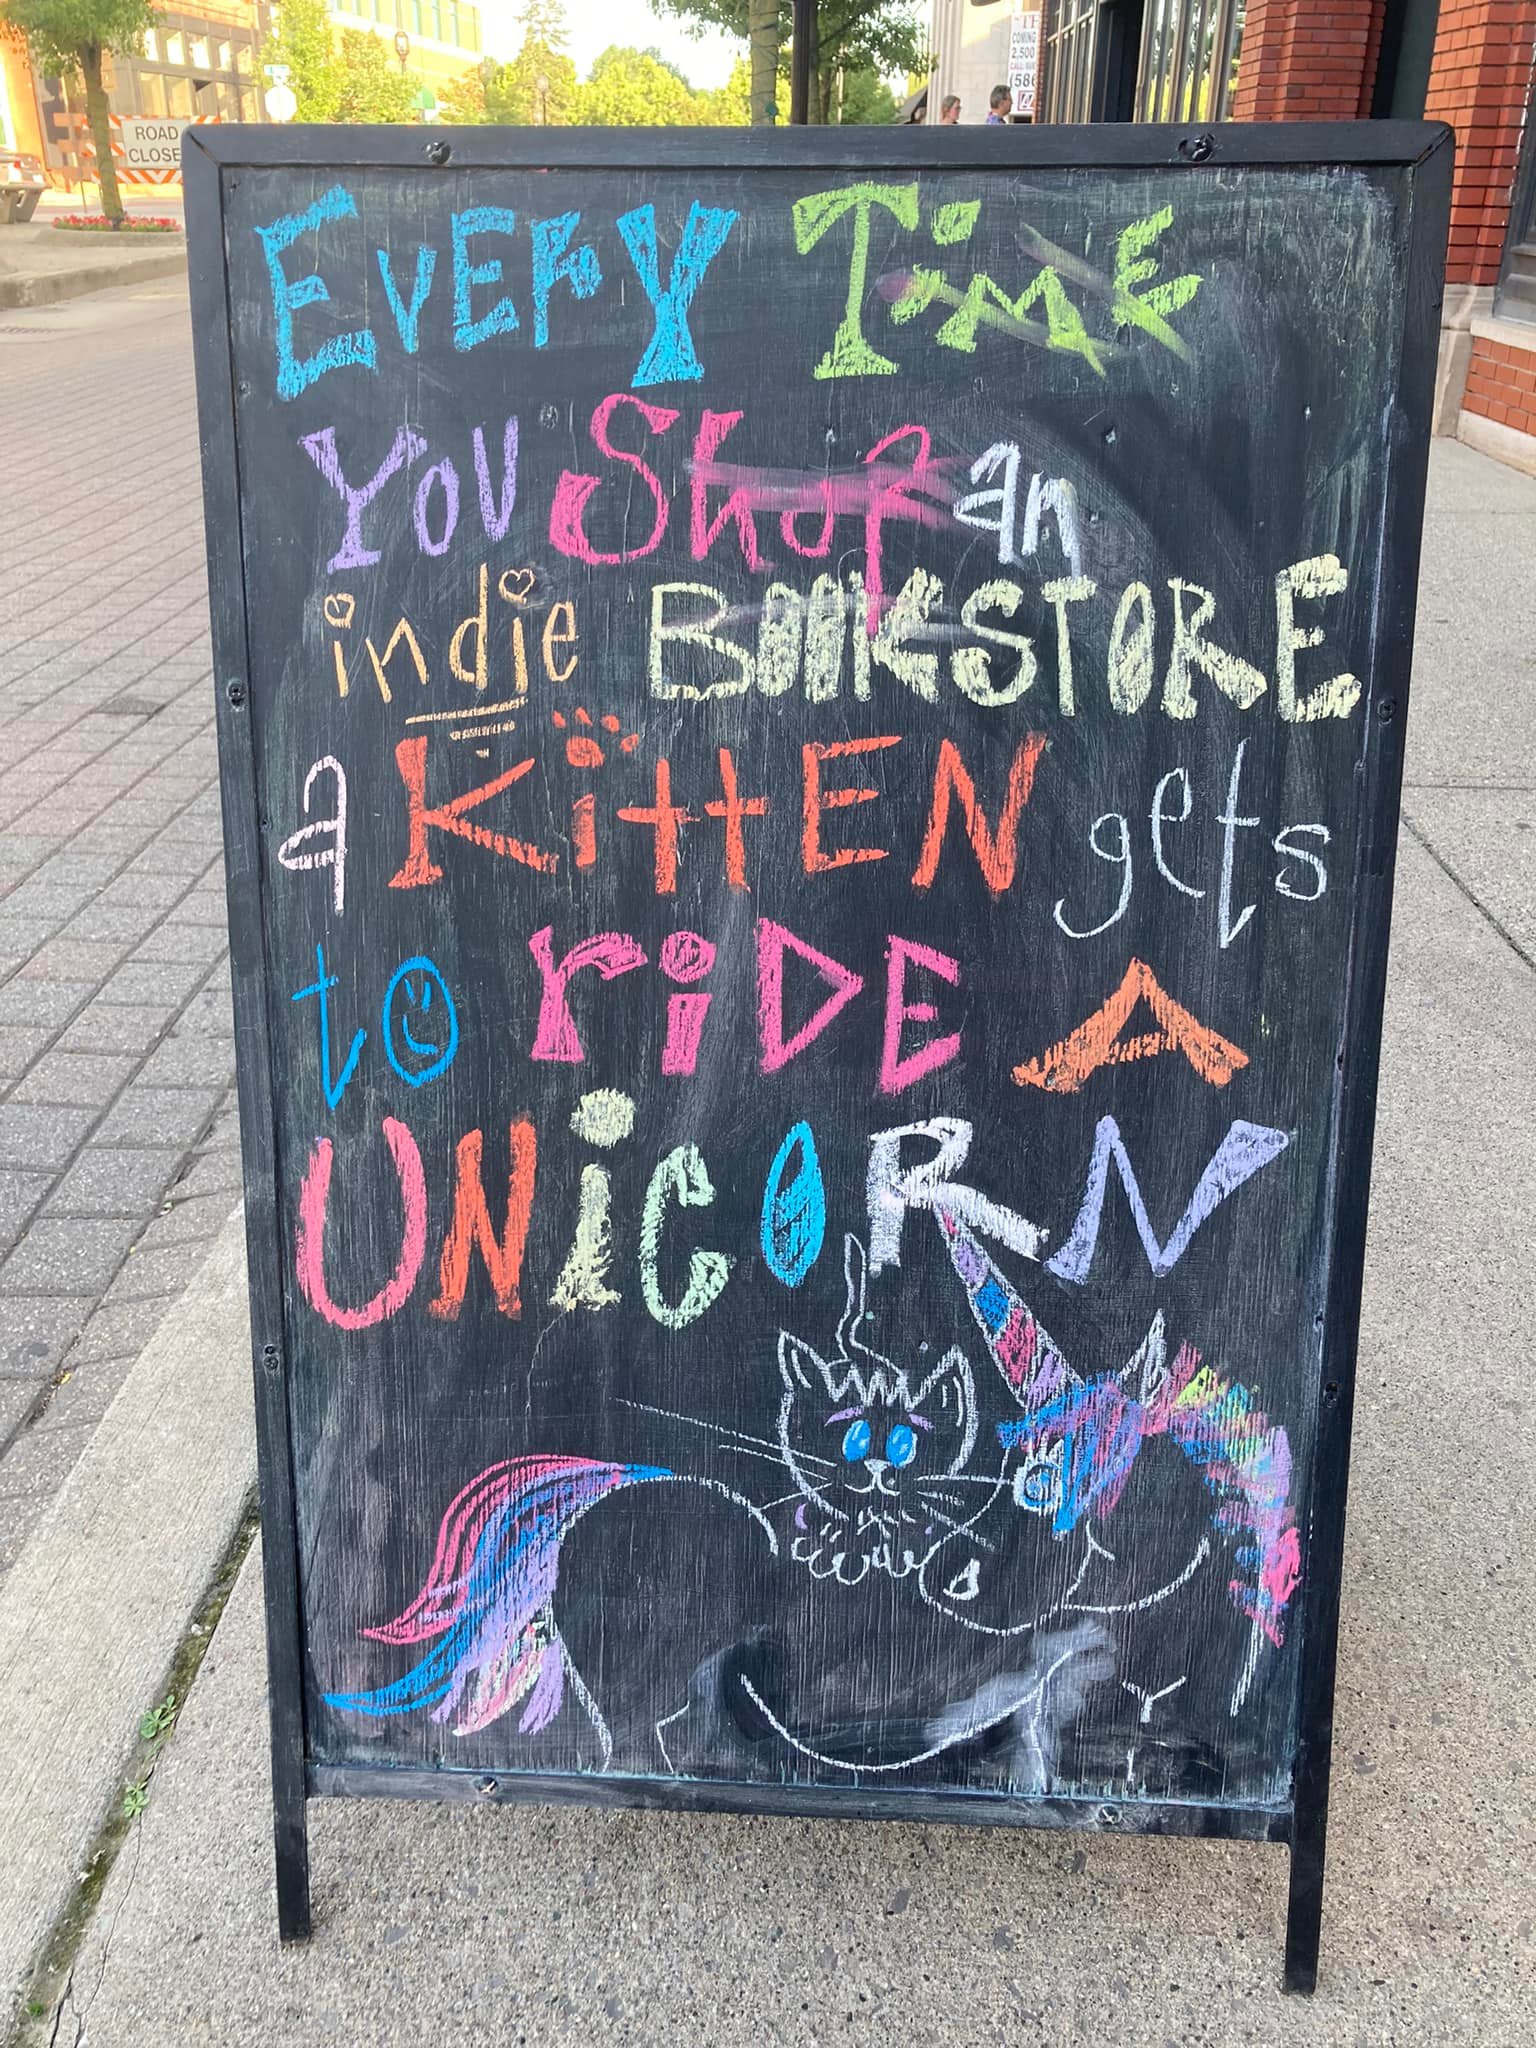 ROAD
CLOSE
TH
COMING
2,500
(586
EVERY TiME
YOU Shop an
indie BOOKSTORE
a KittEN gets
to riDE A
UNiCORN